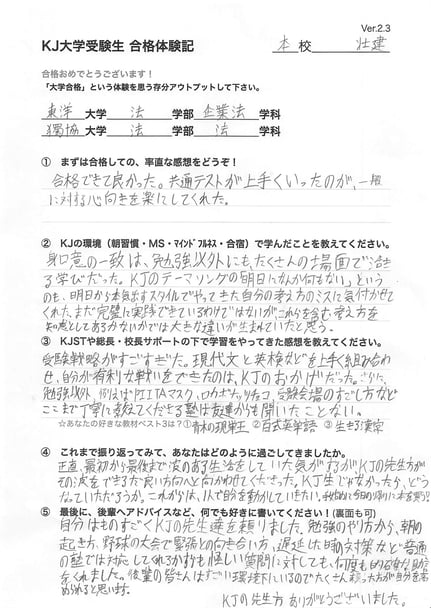 Ver.2.3
KJ大学受験生 合格体験記
本 校 壮建
合格おめでとうございます！
「大学合格」という体験を思う存分アウトプットして下さい。
東洋 大学 法 学部 企業法 学科
獨協 大学 法 学部 法 学科
① まずは合格しての、率直な感想をどうぞ！
合格できて良かった。共通テストが上手くいったのが、一般
に対する心向きを楽にしてくれた。
② KJの環境（朝習慣・MS・マインドフルネス・合宿）で学んだことを教えてください。
身口意の一致は、勉強以外にもたくさんの場面で活き
る学びだった。KJのテーマソングの「明日になんか何もない」という
のも、明日から本気出すスタイルでやってきた自分の考え方のミスに気付かせて
くれた。まだ完璧に実践できているわけではないが、これらを含む考え方を
知恵としてあるかないかでは大きな違いが生まれていたと思う。
③ KJSTや総長・校長サポートの下で学習をやってきた感想を教えてください。
受験戦略がすごすぎた。現代文と英検などを上手く組み合わ
せ、自分が有利な戦いをできたのは、KJのおかげだった。
勉強以外、例えばPIITAマスク、ロカボナッツチョコ、受験会場のすごし方など
ここまで丁寧に教えてくださる塾は友達からも聞いたことない。
☆あなたの好きな教材ベスト3は？①青木の現単王 ②百式英単語 ③生きる漢字
④ これまで振り返ってみて、あなたはどのように過ごしてきましたか。
正直、最初から最後まで波のある生活をしていた気がするがKJの先生方が
その波をできるだけ良い方向へと向かわせてくださった。KJ生じゃなかったら、どう
なっていただろうか。これからは、1人で舵を動かしていきたい。
⑤ 最後に、後輩へアドバイスなど、何でも好きに書いてください！（裏面も可）
自分はものすごくKJの先生達を頼りました。勉強のやり方から、朝の
起き方、野球の大会で緊張との向き合い方、遅延した時の対策など普通
の塾では対応してくれるかも怪しい質問に対しても、何度も的確な助言
をくれました。後輩の皆さんはすごい環境にいるのでたくさん頼った方が自分を高
められると思います。
KJの先生方ありがとうございました。